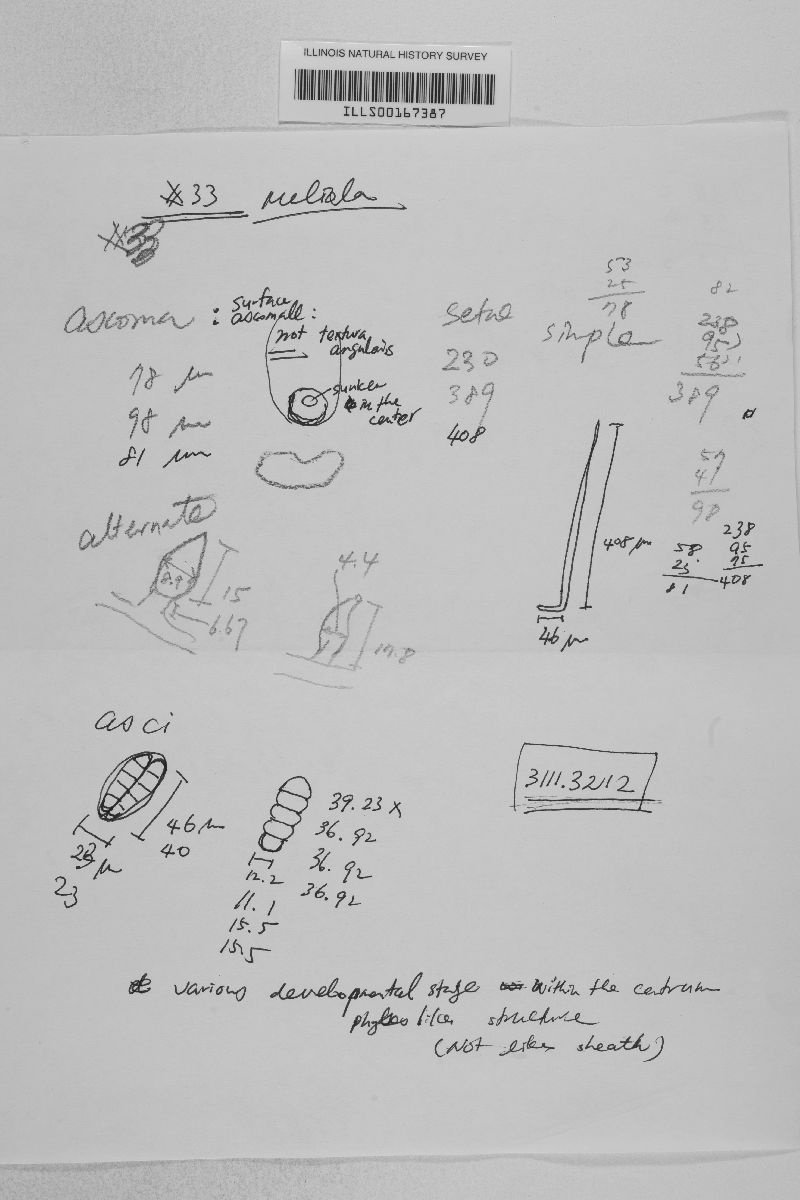 ILLINOIS NATURAL HISTORY SURVEY
ILLS00167387
#33 meliola
#33
ascoma : surface
ascomall :
not textura
angularis
sunken
in the
center
78 µm
98 µm
81 µm
setae
simple
230
389
408
53
25
78
82
238
95
56
389
57
41
98
238
58 95
23 75
81 408
408 µm
46 µm
alternate
8.9
15
6.67
4.4
17.8
asci
46 µm
40
23 µm
23
39.23 x
36.92
36.92
36.92
12.2
11.1
15.5
15.5
3111.3212
various developmental stage within the centrum
like structure
(Not like sheath)